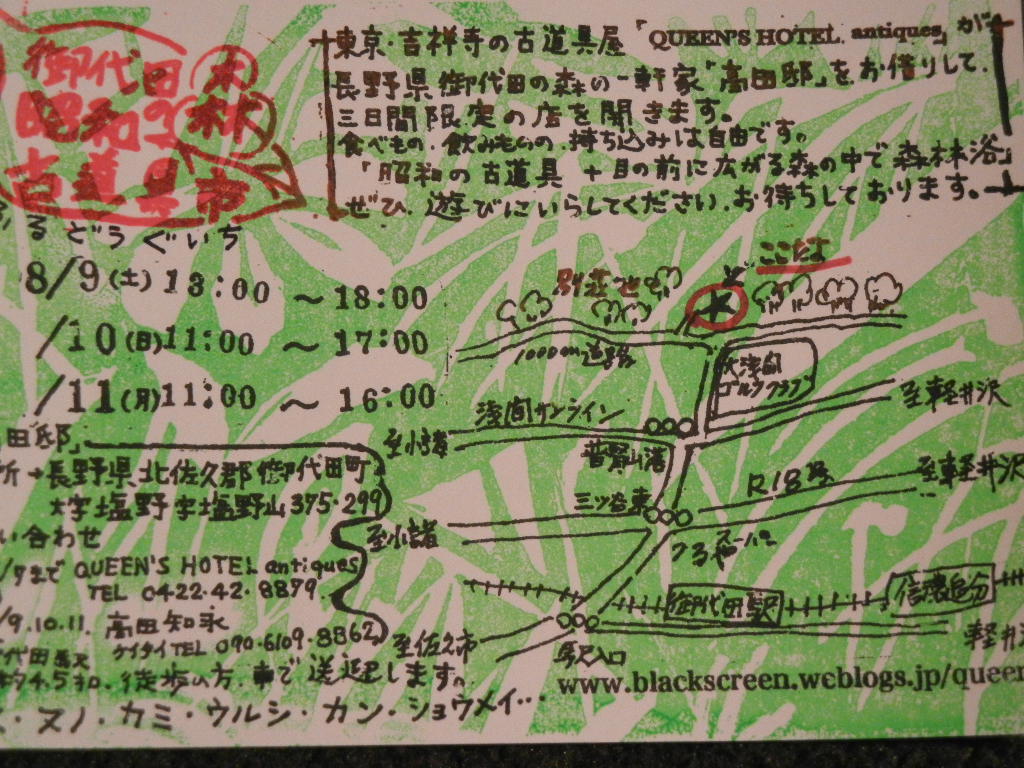 御代田
昭和の
古道具市
森林
東京・吉祥寺の古道具屋「QUEEN'S HOTEL. antiques」が
長野県御代田の森の一軒家「高田邸」をお借りして.
三日間限定の店を開きます。
食べもの・飲みものの持ち込みは自由です。
「昭和の古道具 + 目の前に広がる森の中で森林浴」
ぜひ.遊びにいらしてください.お待ちしております。
るどうぐいち
8/9(土)13:00 〜18:00
/10(日)11:00 〜 17:00
/11(月)11:00 〜 16:00
ここだよ
別荘地
1000m道路
大浅間
ゴルフクラブ
浅間サンライン
至軽井沢
至小諸
普賢山落
R18号
至軽井沢
三ツ谷東
至小諸
スーパー
御代田駅
信濃追分
至佐久市
駅入口
田邸」
所→長野県北佐久郡御代田町
大字塩野字塩野山375-299
い合わせ
まで QUEEN'S HOTEL antiques
TEL 0422.42.8879
/9.10.11. 高田知永
ケイタイTEL 090.6109.8862
代田駅
約4.5キロ.徒歩の方.車で送迎します。
ヌノ・カミ・ウルシ・カン・ショウメイ・・
www.blackscreen.weblogs.jp/queen